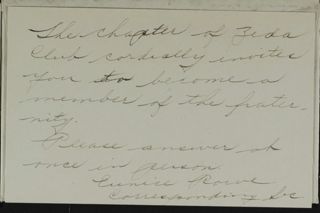 The chapter of Zeda
Club cordially invites
you to become a
member of the frater-
nity.
Please answer at
once in person.
Eunice Rowe
Corresponding Sec